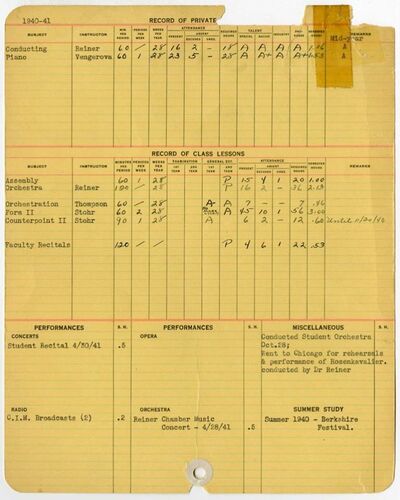 1940-41 RECORD OF PRIVATE
SUBJECT INSTRUCTOR MIN. PER PERIOD PERIODS PER WEEK WEEKS PER YEAR ATTENDANCE PRESENT ABSENT EXCUSED UNEX. REQUIRED HOURS TALENT SPECIAL RACIAL INDUSTRY REMARKS
Mid-year
Conducting Reiner 60 / 28 16 2 - 18 A A A A A
Piano Vengerova 60 1 28 23 5 - 28 A A+ A A+ A
RECORD OF CLASS LESSONS
SUBJECT INSTRUCTOR MINUTES PER PERIOD PERIODS PER WEEK WEEKS PER YEAR EXAMINATION 1ST TERM 2ND TERM GENERAL EST. 1ST TERM 2ND TERM ATTENDANCE PRESENT ABSENT EXCUSED UNEX. REQUIRED HOURS SEMESTER HOURS REMARKS
Assembly 60 1 28 P 15 4 1 20 1.00
Orchestra Reiner 120 / 28 P 16 2 - 36 2.13
Orchestration Thompson 60 / 28 A A 7 - - 7 .46
Form II Stohr 60 2 28 A 45 10 1 56 3.00
Counterpoint II Stohr 90 1 28 A 6 2 - 12 .60 Until 11/20/40
Faculty Recitals 120 / / P 4 6 1 22 .53
PERFORMANCES S.H. PERFORMANCES S.H. MISCELLANEOUS
CONCERTS OPERA
Student Recital 4/30/41 .5
Conducted Student Orchestra
Oct.28;
Went to Chicago for rehearsals
& performance of Rosenkavalier.
conducted by Dr Reiner
RADIO ORCHESTRA SUMMER STUDY
C.I.M. Broadcasts (2) .2 Reiner Chamber Music
Concert - 4/28/41 .5
Summer 1940 - Berkshire
Festival.